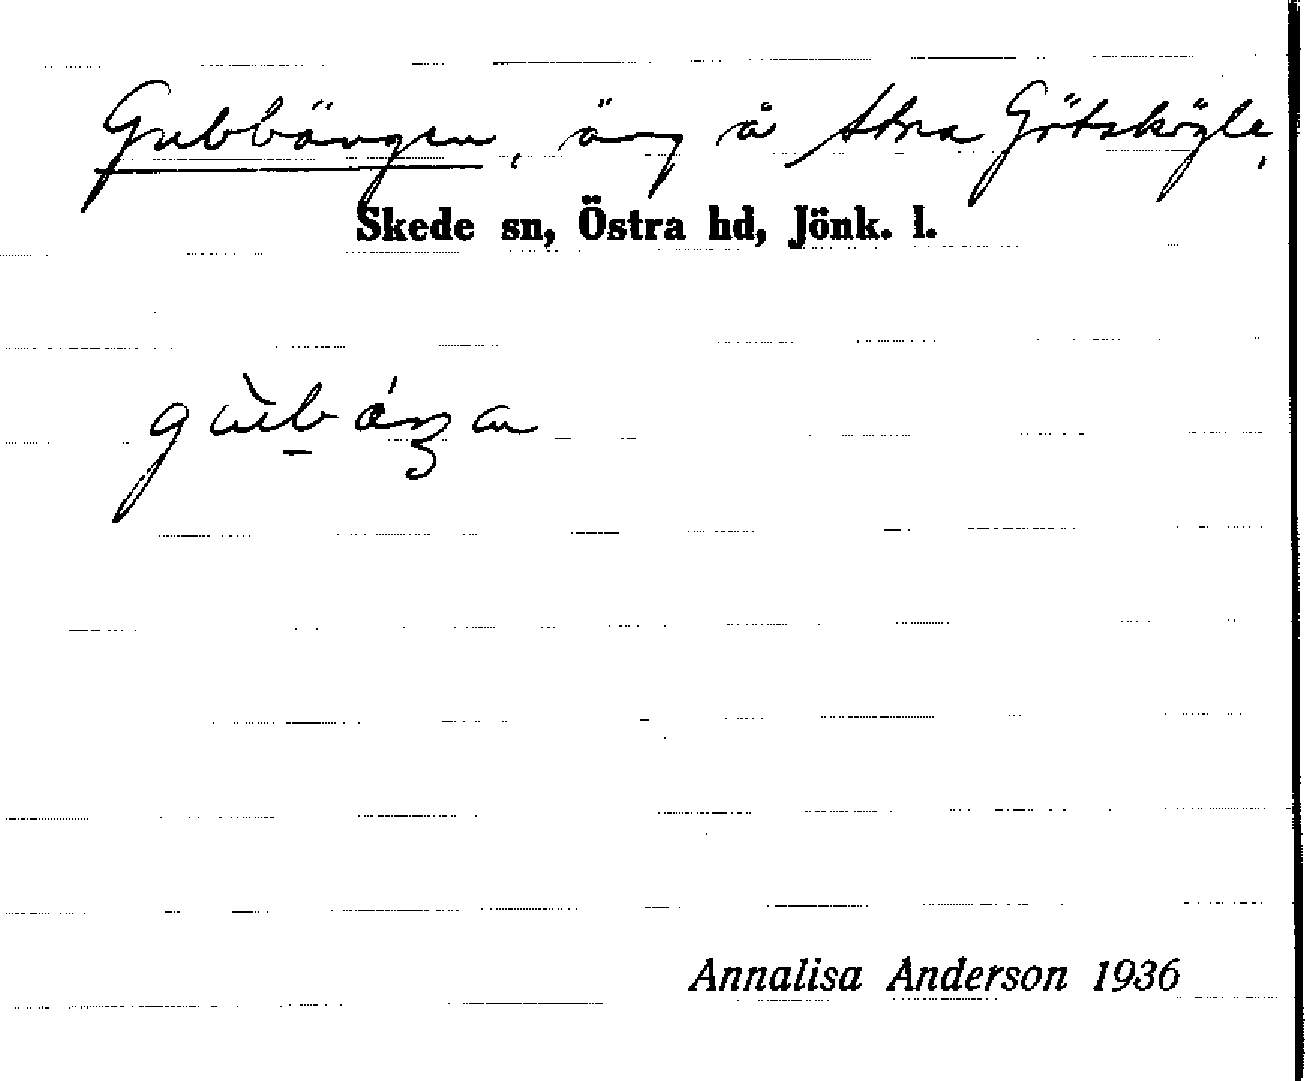 Gubbängen, äng å Stra Götskögle,
Skede sn, Östra hd, Jönk. l.
Annalisa Anderson 1936